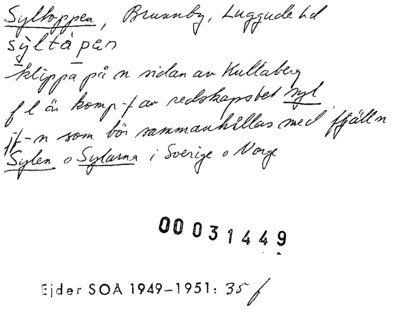 Syltoppen, Brunnby, Luggude hd
syltåpen
klippa på n sidan av Kullaberg
f l är komp-f av redskapsbet syl
jf-n som bör sammanhållas med fjälln
Sylen o Sylarna i Sverige o Norge
00031449
Ejder SOA 1949–1951: 35 f